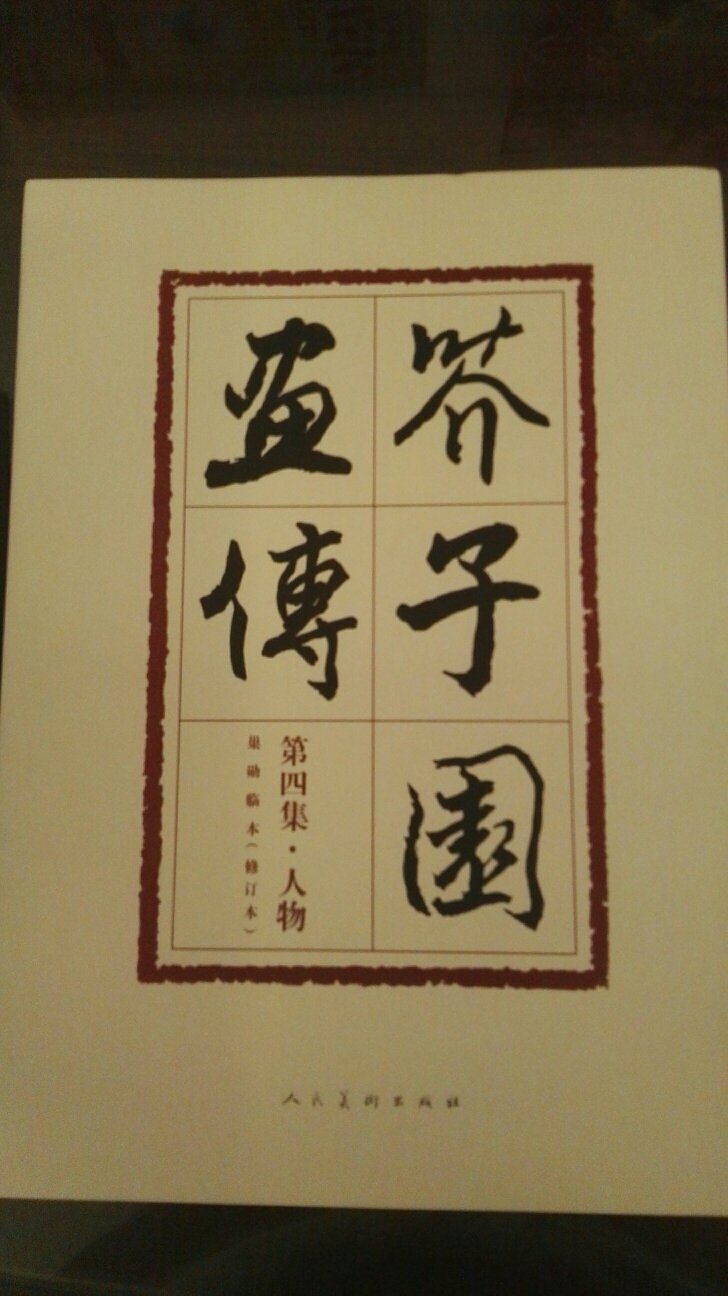 芥子園
畫傳
第四集·人物
巢勋临本（修订本）
人民美术出版社